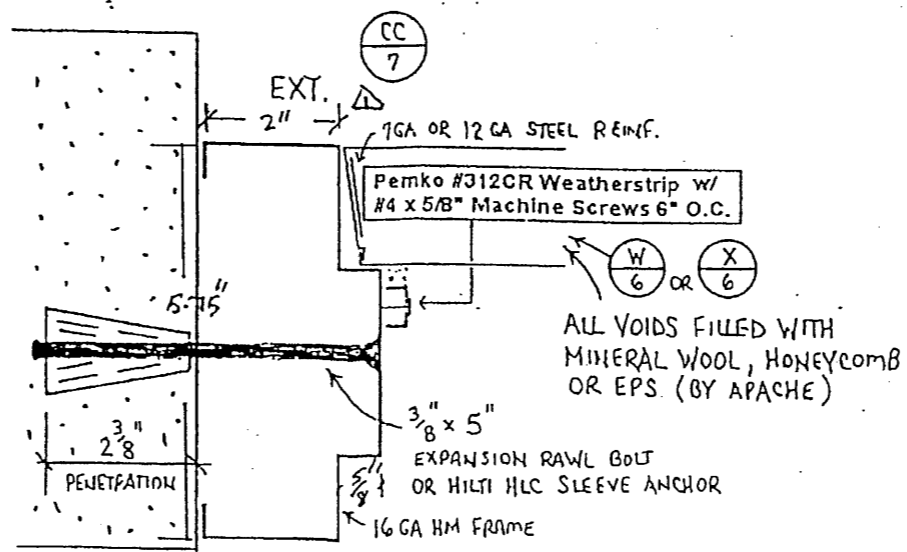 CC
7
EXT.
1
2"
7GA OR 12 GA STEEL REINF.
Pemko #312CR Weatherstrip w/
#4 x 5/8" Machine Screws 6" O.C.
W
6
OR
X
6
5.75"
ALL VOIDS FILLED WITH
MINERAL WOOL, HONEYCOMB
OR EPS (BY APACHE)
3/8" x 5"
EXPANSION RAWL BOLT
OR HILTI HLC SLEEVE ANCHOR
2 3/8"
PENETRATION
5/8"
16 GA HM FRAME